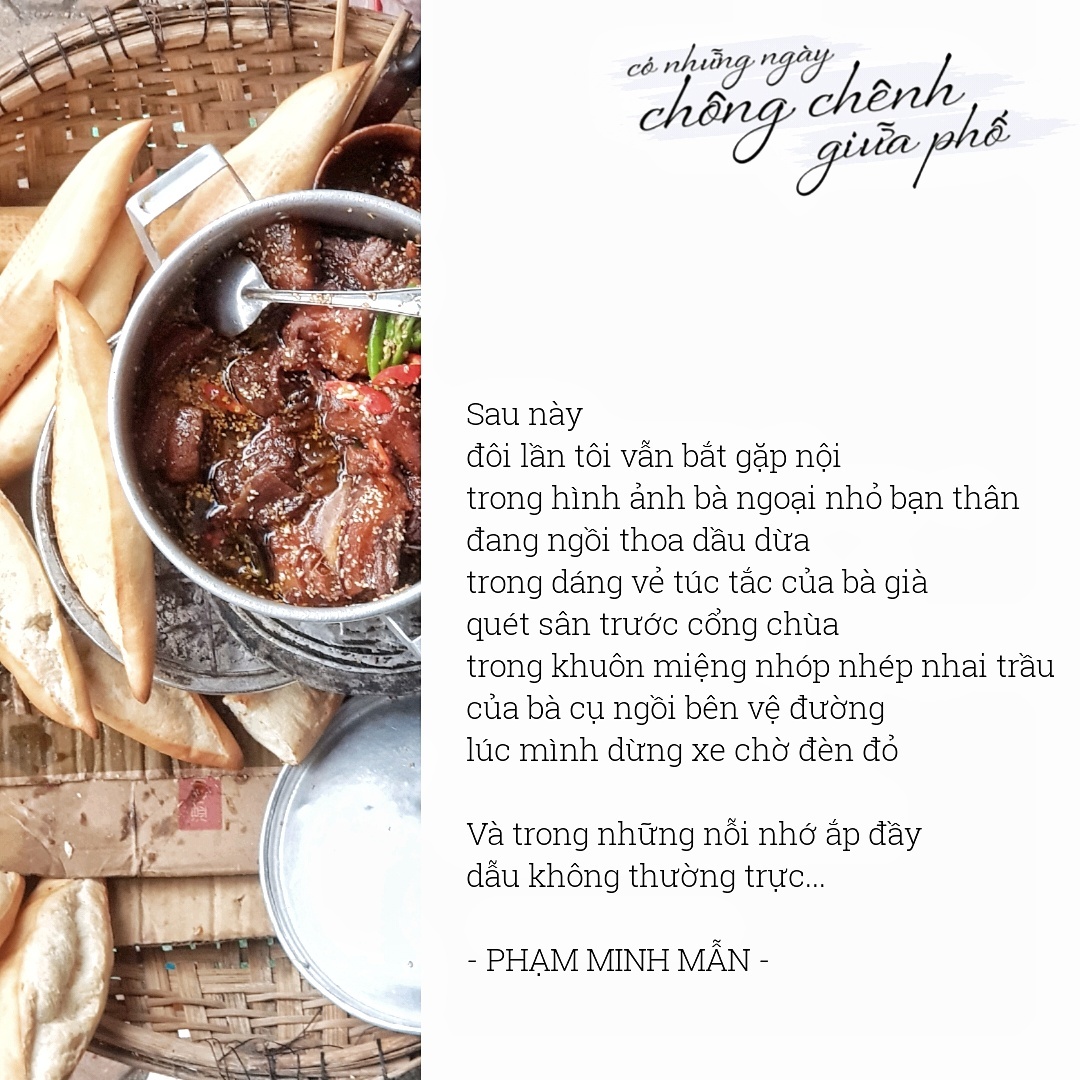 có những ngày
chông chênh
giữa phố
Sau này
đôi lần tôi vẫn bắt gặp nội
trong hình ảnh bà ngoại nhỏ bạn thân
đang ngồi thoa dầu dừa
trong dáng vẻ túc tắc của bà già
quét sân trước cổng chùa
trong khuôn miệng nhóp nhép nhai trầu
của bà cụ ngồi bên vệ đường
lúc mình dừng xe chờ đèn đỏ
Và trong những nỗi nhớ ắp đầy
dẫu không thường trực...
- PHẠM MINH MẪN -